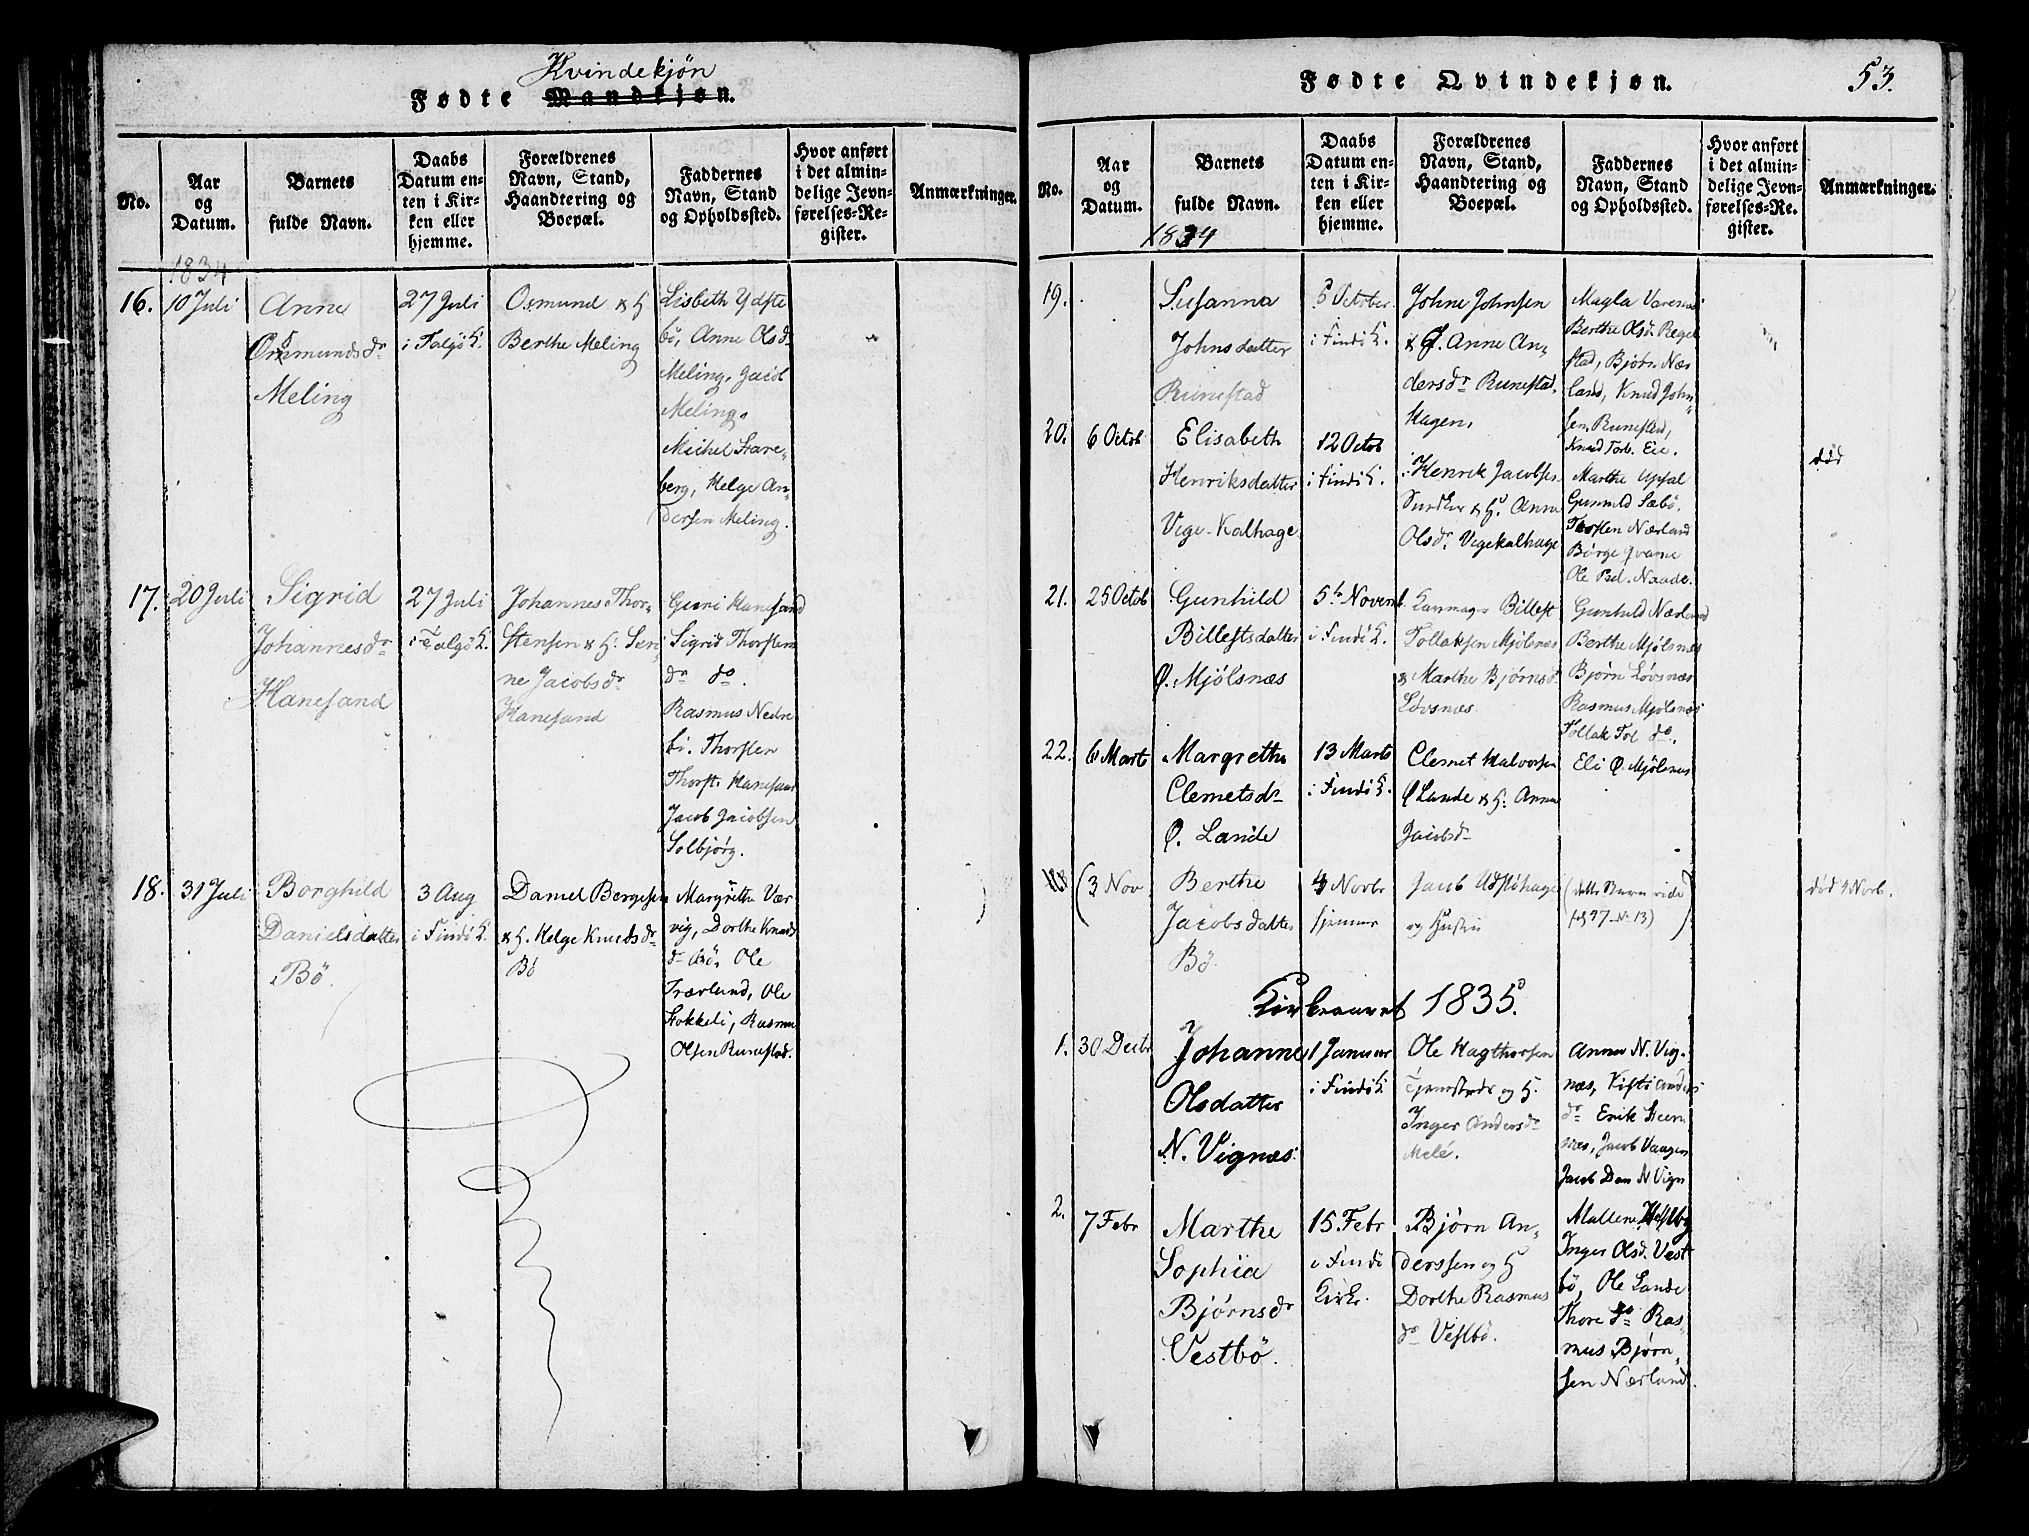 Kvindekjön
Fødte Mandkjøn.
No.
Aar
og
Datum.
Barnets
fulde Navn.
Daabs
Datum en-
ten i Kir-
ken eller
hjemme.
Forældrenes
Navn, Stand,
Haandtering og
Boepæl.
Faddernes
Navn, Stand
og Opholdssted.
Hvor anført
i det almin-
delige Jevn-
førelses-Re-
gister.
Anmærkninger.
1834
16.
10 Juli
Anne
Osmundsdr
Meling
27 Juli
i Talgö K.
Osmund & H
Berthe Meling
Lisbeth Ydste
bö, Anne Olsd
Meling, Jacob
Meling,
Michel Stare-
berg, Helge An-
dersen Meling.
17.
20 Juli
Sigrid
Johannesdr
Hanesand
27 Juli
i Talgö K.
Johannes Thor-
stensen & H. Seri-
ne Jacobsdr
Hanesand
Guri Hanesand
Sigrid Thorsten
dr do.
Rasmus Nedre
bö. Thorsten
Thorst. Hanesand
Jacob Jacobsen
Solbjörg.
18.
31 Juli
Borghild
Danielsdatter
Bö.
3 Aug
i Findö K.
Daniel Børgesen
& H. Helge Knudsdr
Bö
Margrethe Vær
vig, Dorthe Knuds
dr Bö, Ole
Nærland, Ole
Stokkeli, Rasmus
Olsen Runestad.
Fødte Qvindekjøn.
53.
No.
Aar
og
Datum.
Barnets
fulde Navn.
Daabs
Datum en-
ten i Kir-
ken eller
hjemme.
Forældrenes
Navn, Stand,
Haandtering og
Boepæl.
Faddernes
Navn, Stand
og Opholdssted.
Hvor anført
i det almin-
delige Jevn-
førelses-Re-
gister.
Anmærkninger.
1834
19.
Susanna
Johnsdatter
Runestad
5 October
i Findö K.
Johne Johnsen
& H. Anne An-
dersdr Runestad
Hagen,
Berthe Olsd.
stad, Bjørn Nær
land, Knud John-
sen Runestad,
Knud Torb. Eie.
20.
6 Octob
Elisabeth
Henriksdatter
Vige-Kalhage
12 Octob
i Findö K.
Henrik Jacobsen
& H. Anne
Olsdr Vigekalhage
Marthe Upsal
Gunnild Sæbö.
Thorsten Nærland
Börge Qvame
Ole Ped. Naade.
död
21.
25 Octob
Gunhild
Billestsdatter
Ø. Mjölsnæs
5te Novemb
i Findö K.
Billest
Tollaksen Mjølsnæs
& Marthe Bjørnsd
Lövsnæs
Gunhild Nærland
Berthe Mjølsnæs
Bjørn Lövsnæs
Rasmus Mjølsnæs
Tollak Tol do.
Eli Ø. Mjölsnæs
22.
6 Marts
Margrethe
Clemetsdr
Ø. Lande
13 Marts
i Findö K.
Clemet Halvorsen
Ø Lande & H. Anna
Jacobsdr
(3 Nov
Berthe
Jacobsdatter
Bö.
4 Novbr
hjemme
Jacob Udstöhage
og Hustru
(dette Navn vide
fol 97 No 13)
död 4 Novb.
Kirkeaaret 1835.
1.
30 Decbr
Johanne
Olsdatter
N. Vignæs
1 Januar
i Findö K
Ole Hagthorsen
og H.
Inger Andersdr
Mele.
Anna N. Vig-
næs, Kisti Anders
dr Erik Steen
næs, Jacob Vaagen
Jacob Dan N Vign
2.
7 Febr
Marthe
Sophia
Bjørnsdr
Vestbö.
15 Febr
i Findö
Kirke.
Bjørn An-
derssen og H
Dorthe Rasmus
dr Vestbö.
Mallene Vestbö
Inger Olsd. Vest
bö, Ole Lande
Thore do Ras-
mus Bjørn-
sen Nærland.